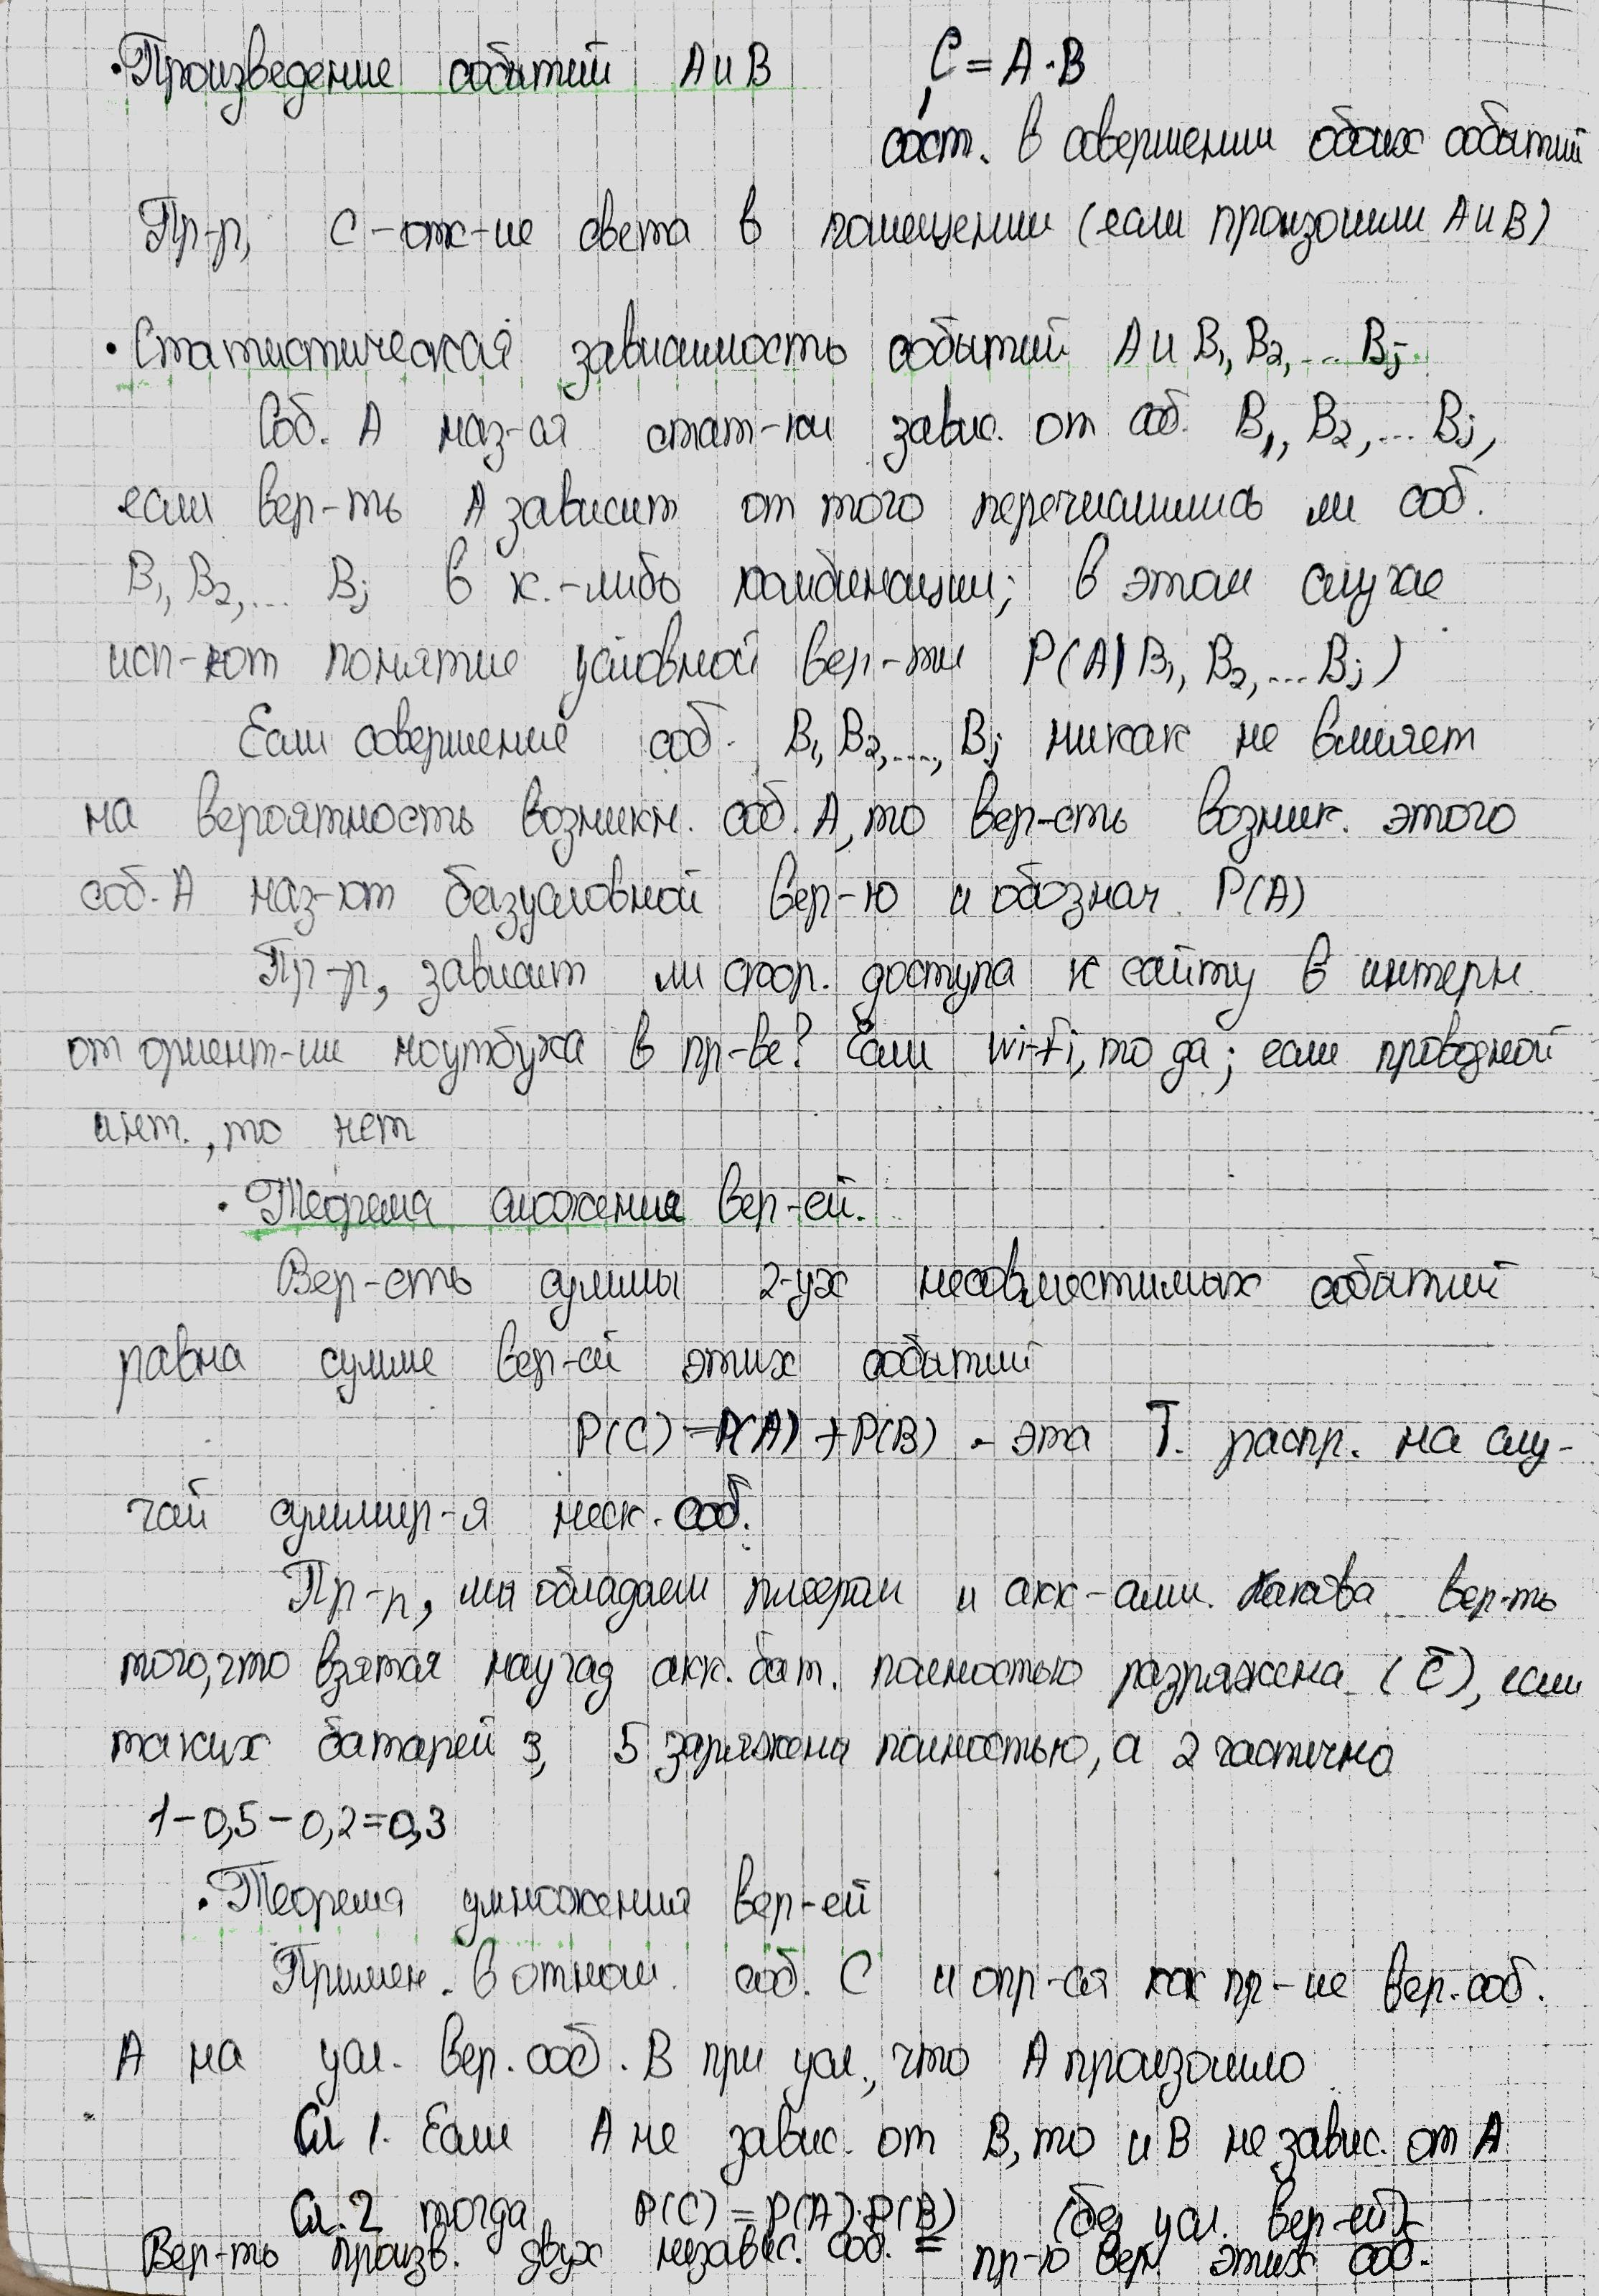 • Произведение событий А и В С = А · В
сост. в совершении обоих событий
Пр-р, С – отк-ие света в помещении (если произошли А и В)
• Статистическая зависимость событий А и В₁, В₂, ... Вj
Соб. А наз-ся стат-ки завис. от соб. В₁, В₂, ... Вj,
если вер-ть А зависит от того перечислились ли соб.
В₁, В₂, ... Вj в к.-либо комбинации; в этом случае
исп-ют понятие условной вер-ти P(A|B₁, B₂, ... Bj)
Если совершение соб. В₁, В₂, ..., Вj никак не влияет
на вероятность возникн. соб. А, то вер-сть возник. этого
соб. А наз-ют безусловной вер-ю и обознач. P(A)
Пр-р, зависит ли скор. доступа к сайту в интерн.
от ориент-ии ноутбука в пр-ве? Если wi-fi, то да; если проводной
инт., то нет
• Теорема сложения вер-ей.
Вер-сть суммы 2-ух несовместимых событий
равна сумме вер-ей этих событий
P(C) = P(A) + P(B) - эта Т. распр. на слу-
чай суммир-я неск. соб.
Пр-р, мы обладаем плеером и акк-ами. Какова вер-ть
того, что взятая наугад акк. бат. полностью разряжена (C̄), если
таких батарей 3, 5 заряжены полностью, а 2 частично
1 - 0,5 - 0,2 = 0,3
• Теорема умножения вер-ей
Примен. в отнош. соб. С и опр-ся как пр-ие вер. соб.
А на усл. вер. соб. В при усл., что А произошло
Сл 1. Если А не завис. от В, то и В не завис. от А
Сл. 2 тогда P(C) = P(A) · P(B) (без усл. вер-ей)
Вер-ть произв. двух независ. соб. = пр-ю вер. этих соб.